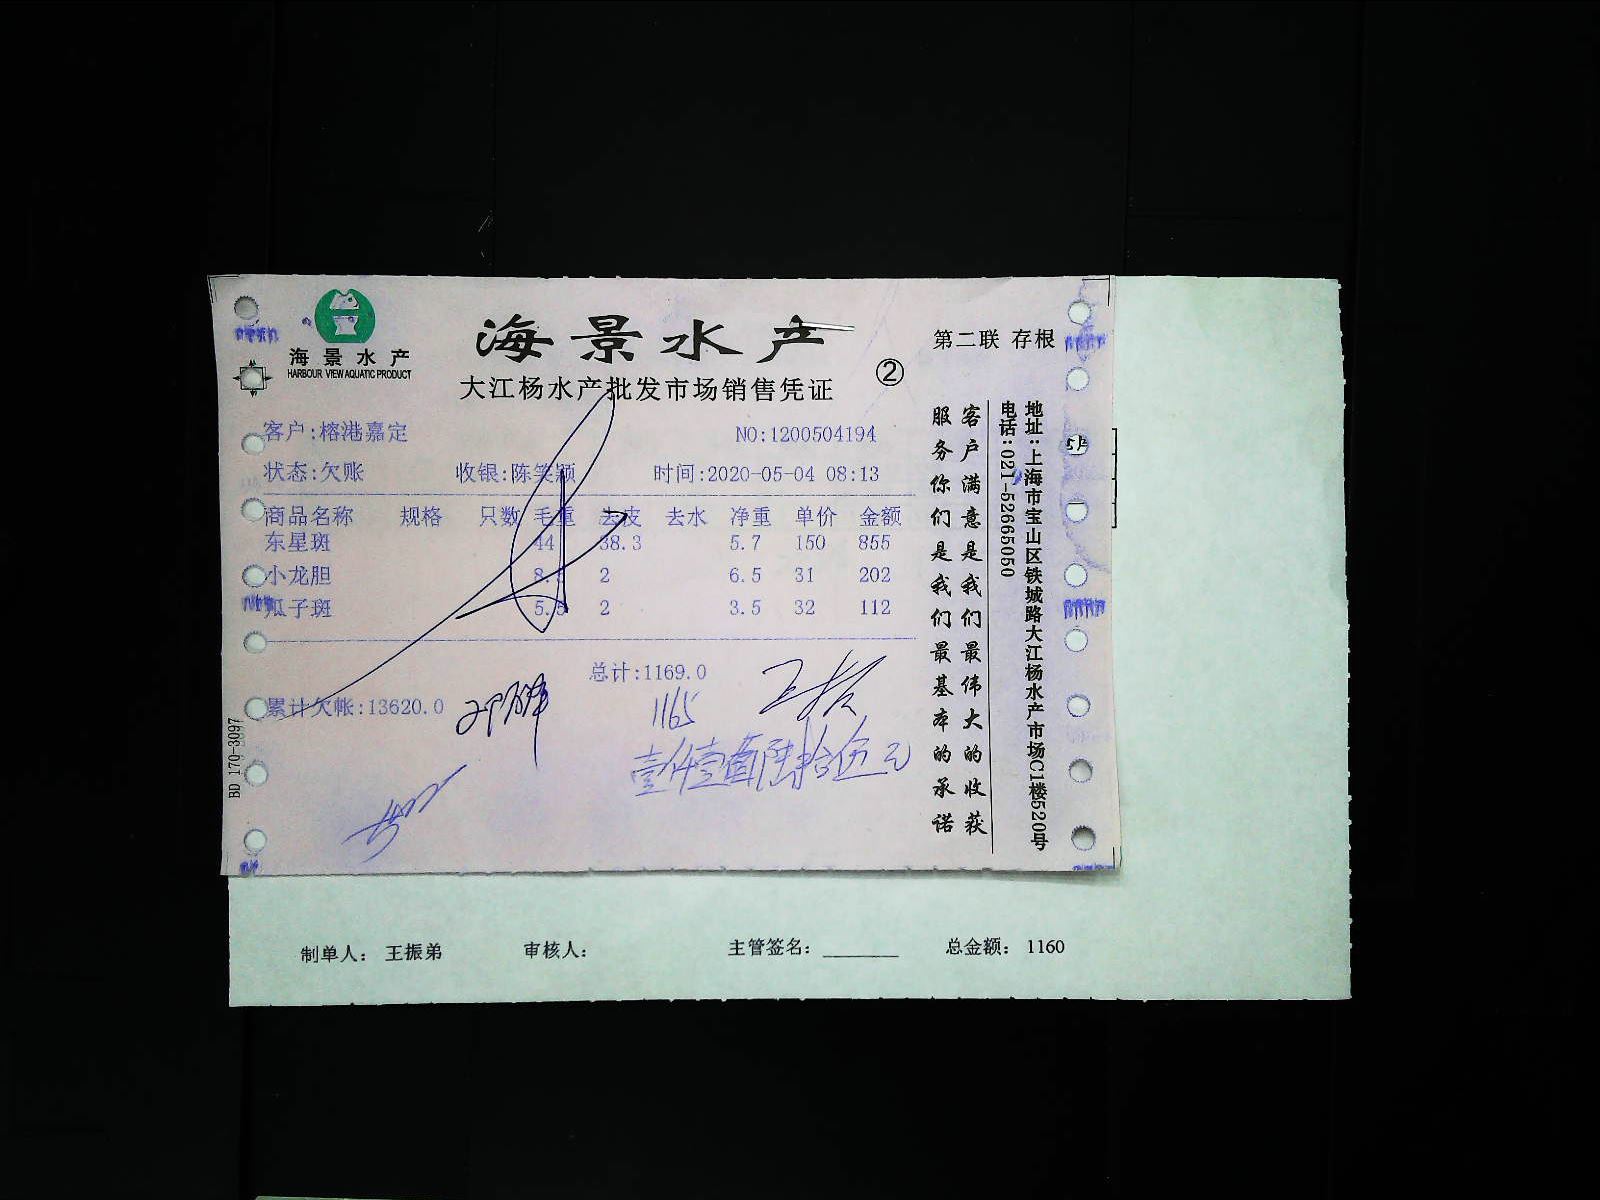 海景水产
HARBOUR VIEW AQUATIC PRODUCT
海景水产
大江杨水产批发市场销售凭证
②
第二联 存根
客户:榕港嘉定 NO:1200504194
状态:欠账 收银:陈笑颖 时间:2020-05-04 08:13
商品名称 规格 只数 毛重 去皮 去水 净重 单价 金额
东星斑 44 38.3 5.7 150 855
小龙胆 8.5 2 6.5 31 202
瓜子斑 5.5 2 3.5 32 112
总计:1169.0
累计欠帐:13620.0
1165
壹仟壹佰陆拾伍元
客户满意是我们最伟大的收获
服务你们是我们最基本的承诺
地址:上海市宝山区铁城路大江杨水产市场C1楼520号
电话:021-52665050
BD 170-3097
制单人: 王振弟 审核人: 主管签名: 总金额: 1160